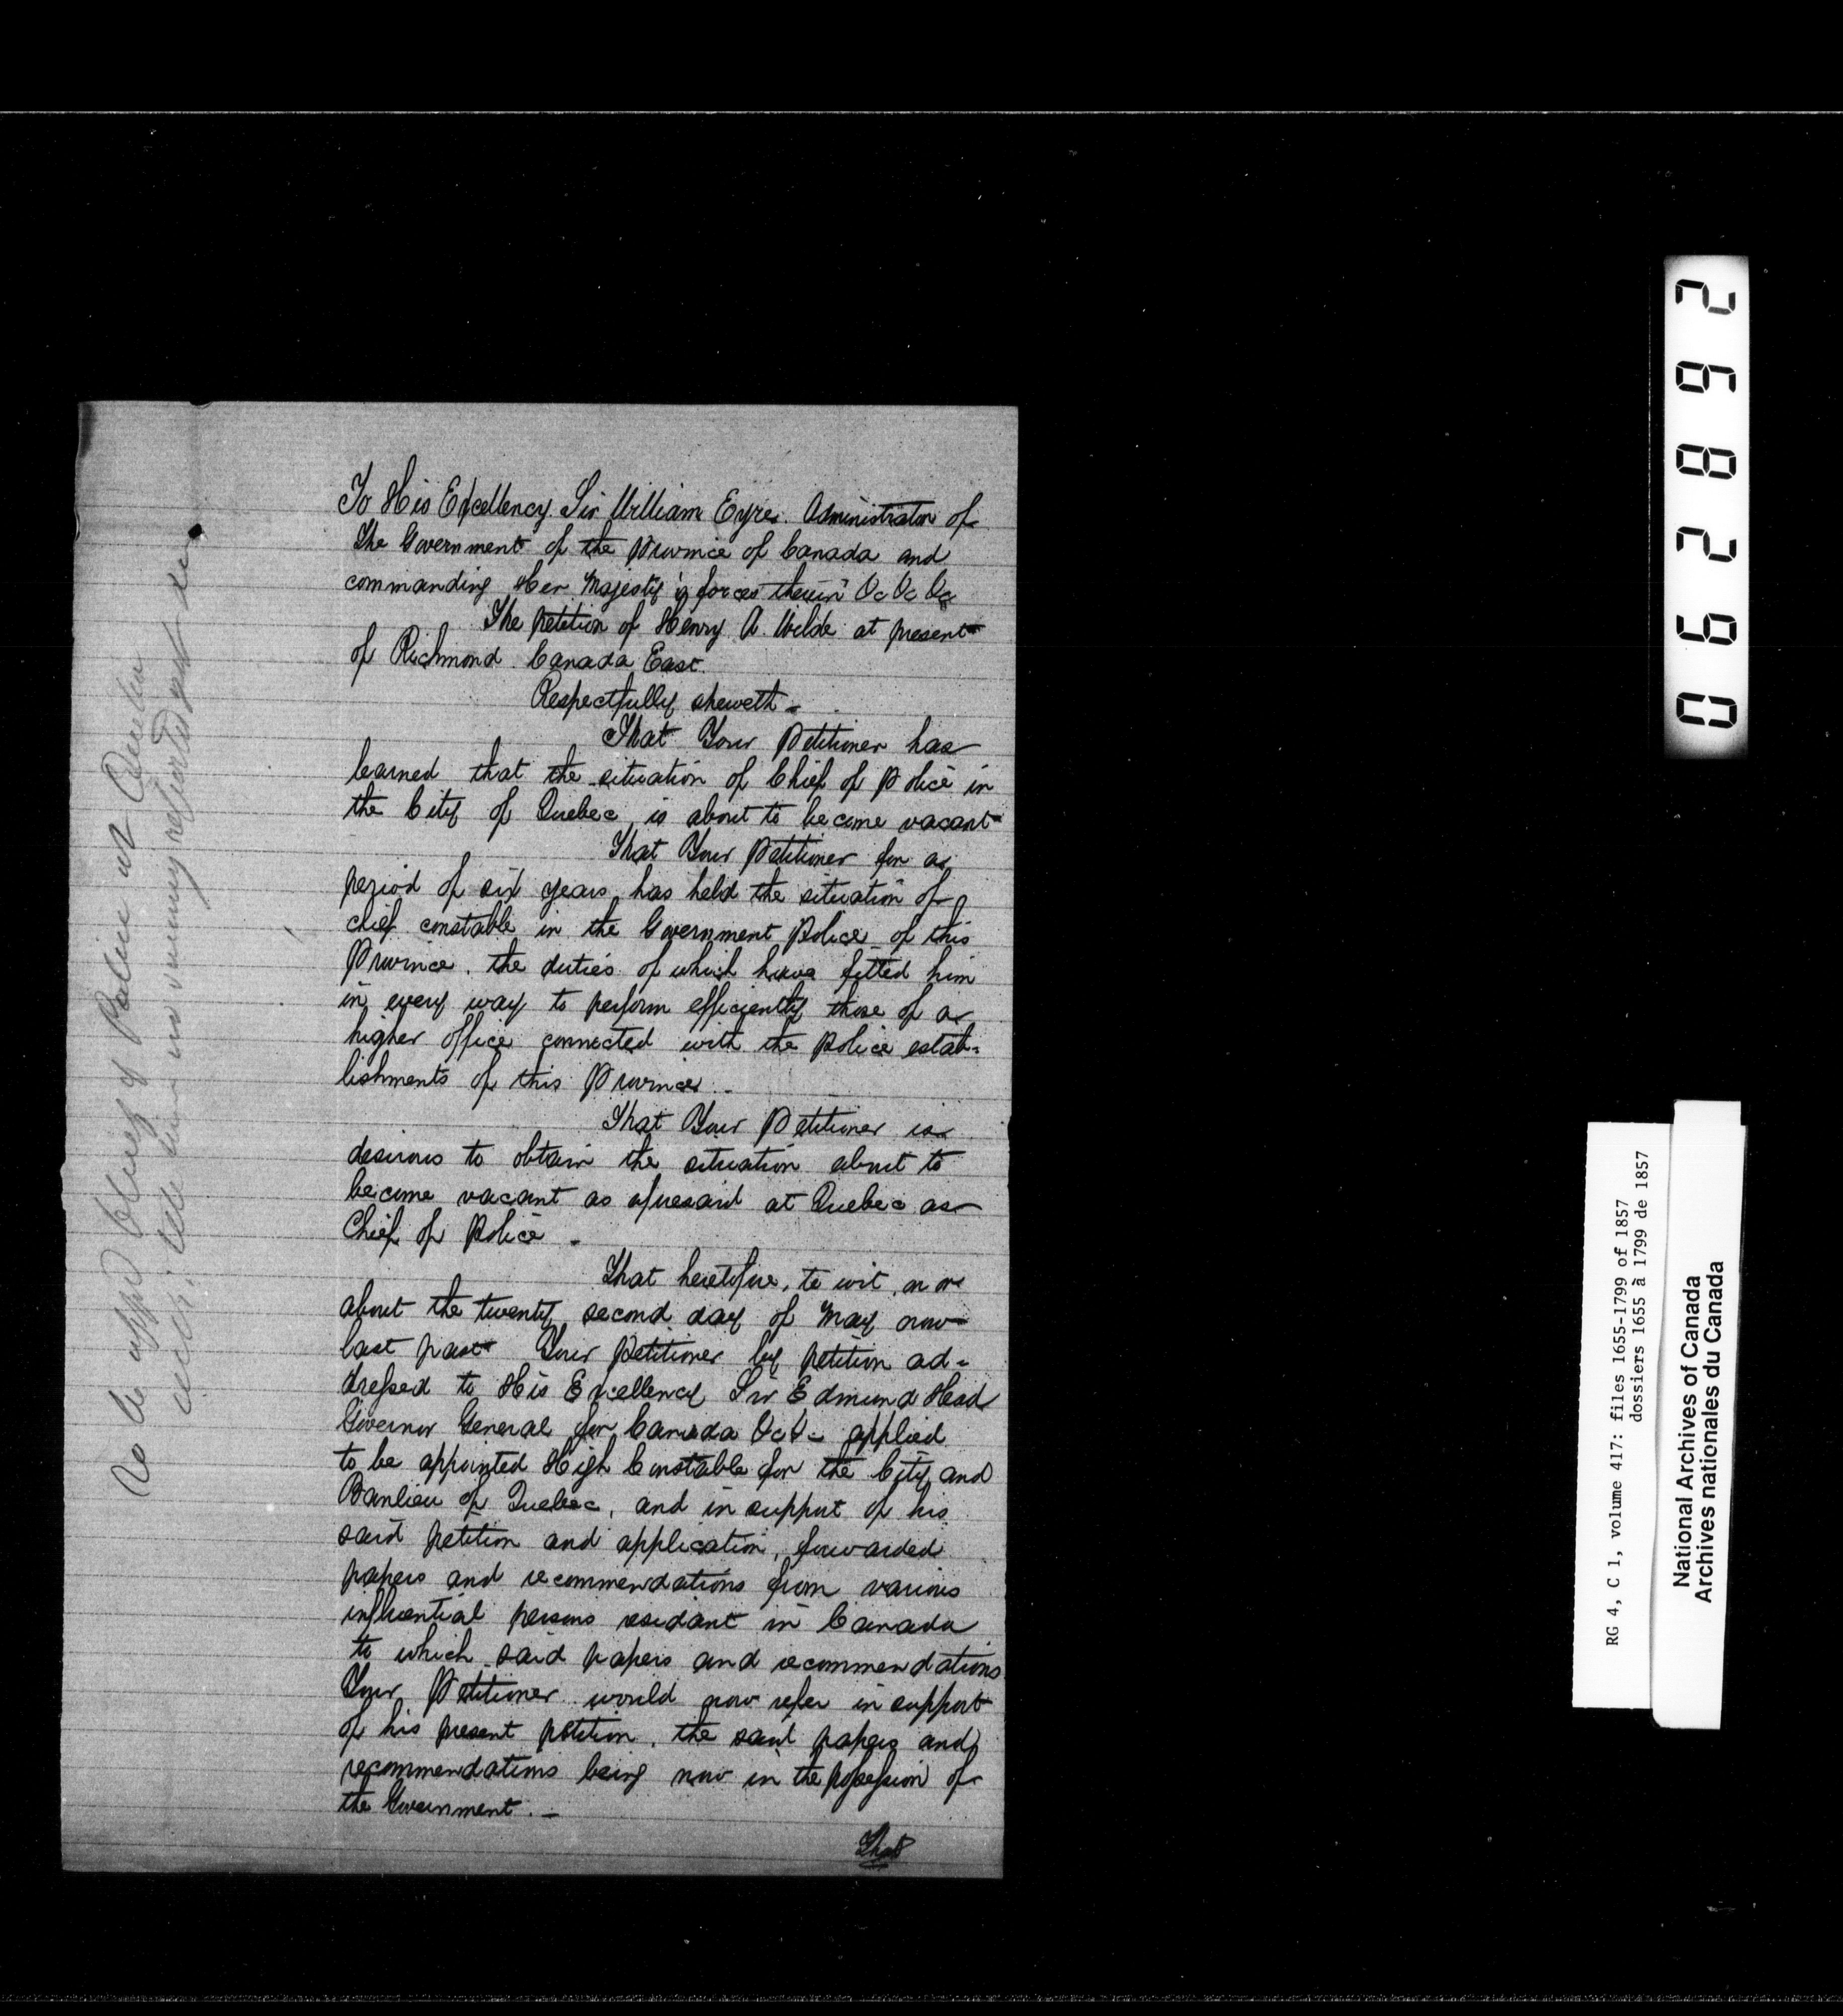 To His Excellency Sir William Eyre. Administrator of
The Government of the Province of Canada and
commanding Her Majesty's forces therein &c &c &c
The petition of Henry A. Wilde at present
of Richmond Canada East.
Respectfully sheweth -
That Your Petitioner has
learned that the situation of Chief of Police in
the City of Quebec, is about to become vacant
That Your Petitioner for a
period of six years, has held the situation of
chief constable in the Government Police of this
Province, the duties of which have fitted him
in every way to perform efficiently those of a
higher office connected with the Police estab-
lishments of this Province -
That Your Petitioner is
desirous to obtain the situation about to
become vacant as aforesaid at Quebec as
Chief of Police -
That heretofore, to wit, on or
about the twenty second day of May now
last past Your Petitioner by petition ad-
dressed to His Excellency Sir Edmund Head
Governor General for Canada &c &c applied
to be appointed High Constable for the City and
Banlieu of Quebec, and in support of his
said petition and application, forwarded
papers and recommendations from various
influential persons resident in Canada
to which said papers and recommendations
Your Petitioner would now refer in support
of his present petition, the said papers and
recommendations being now in the possession of
the Government. -
That
To be appd Chief of Police at Quebec
062892
RG 4, C 1, volume 417: files 1655-1799 of 1857
dossiers 1655 à 1799 de 1857
National Archives of Canada
Archives nationales du Canada